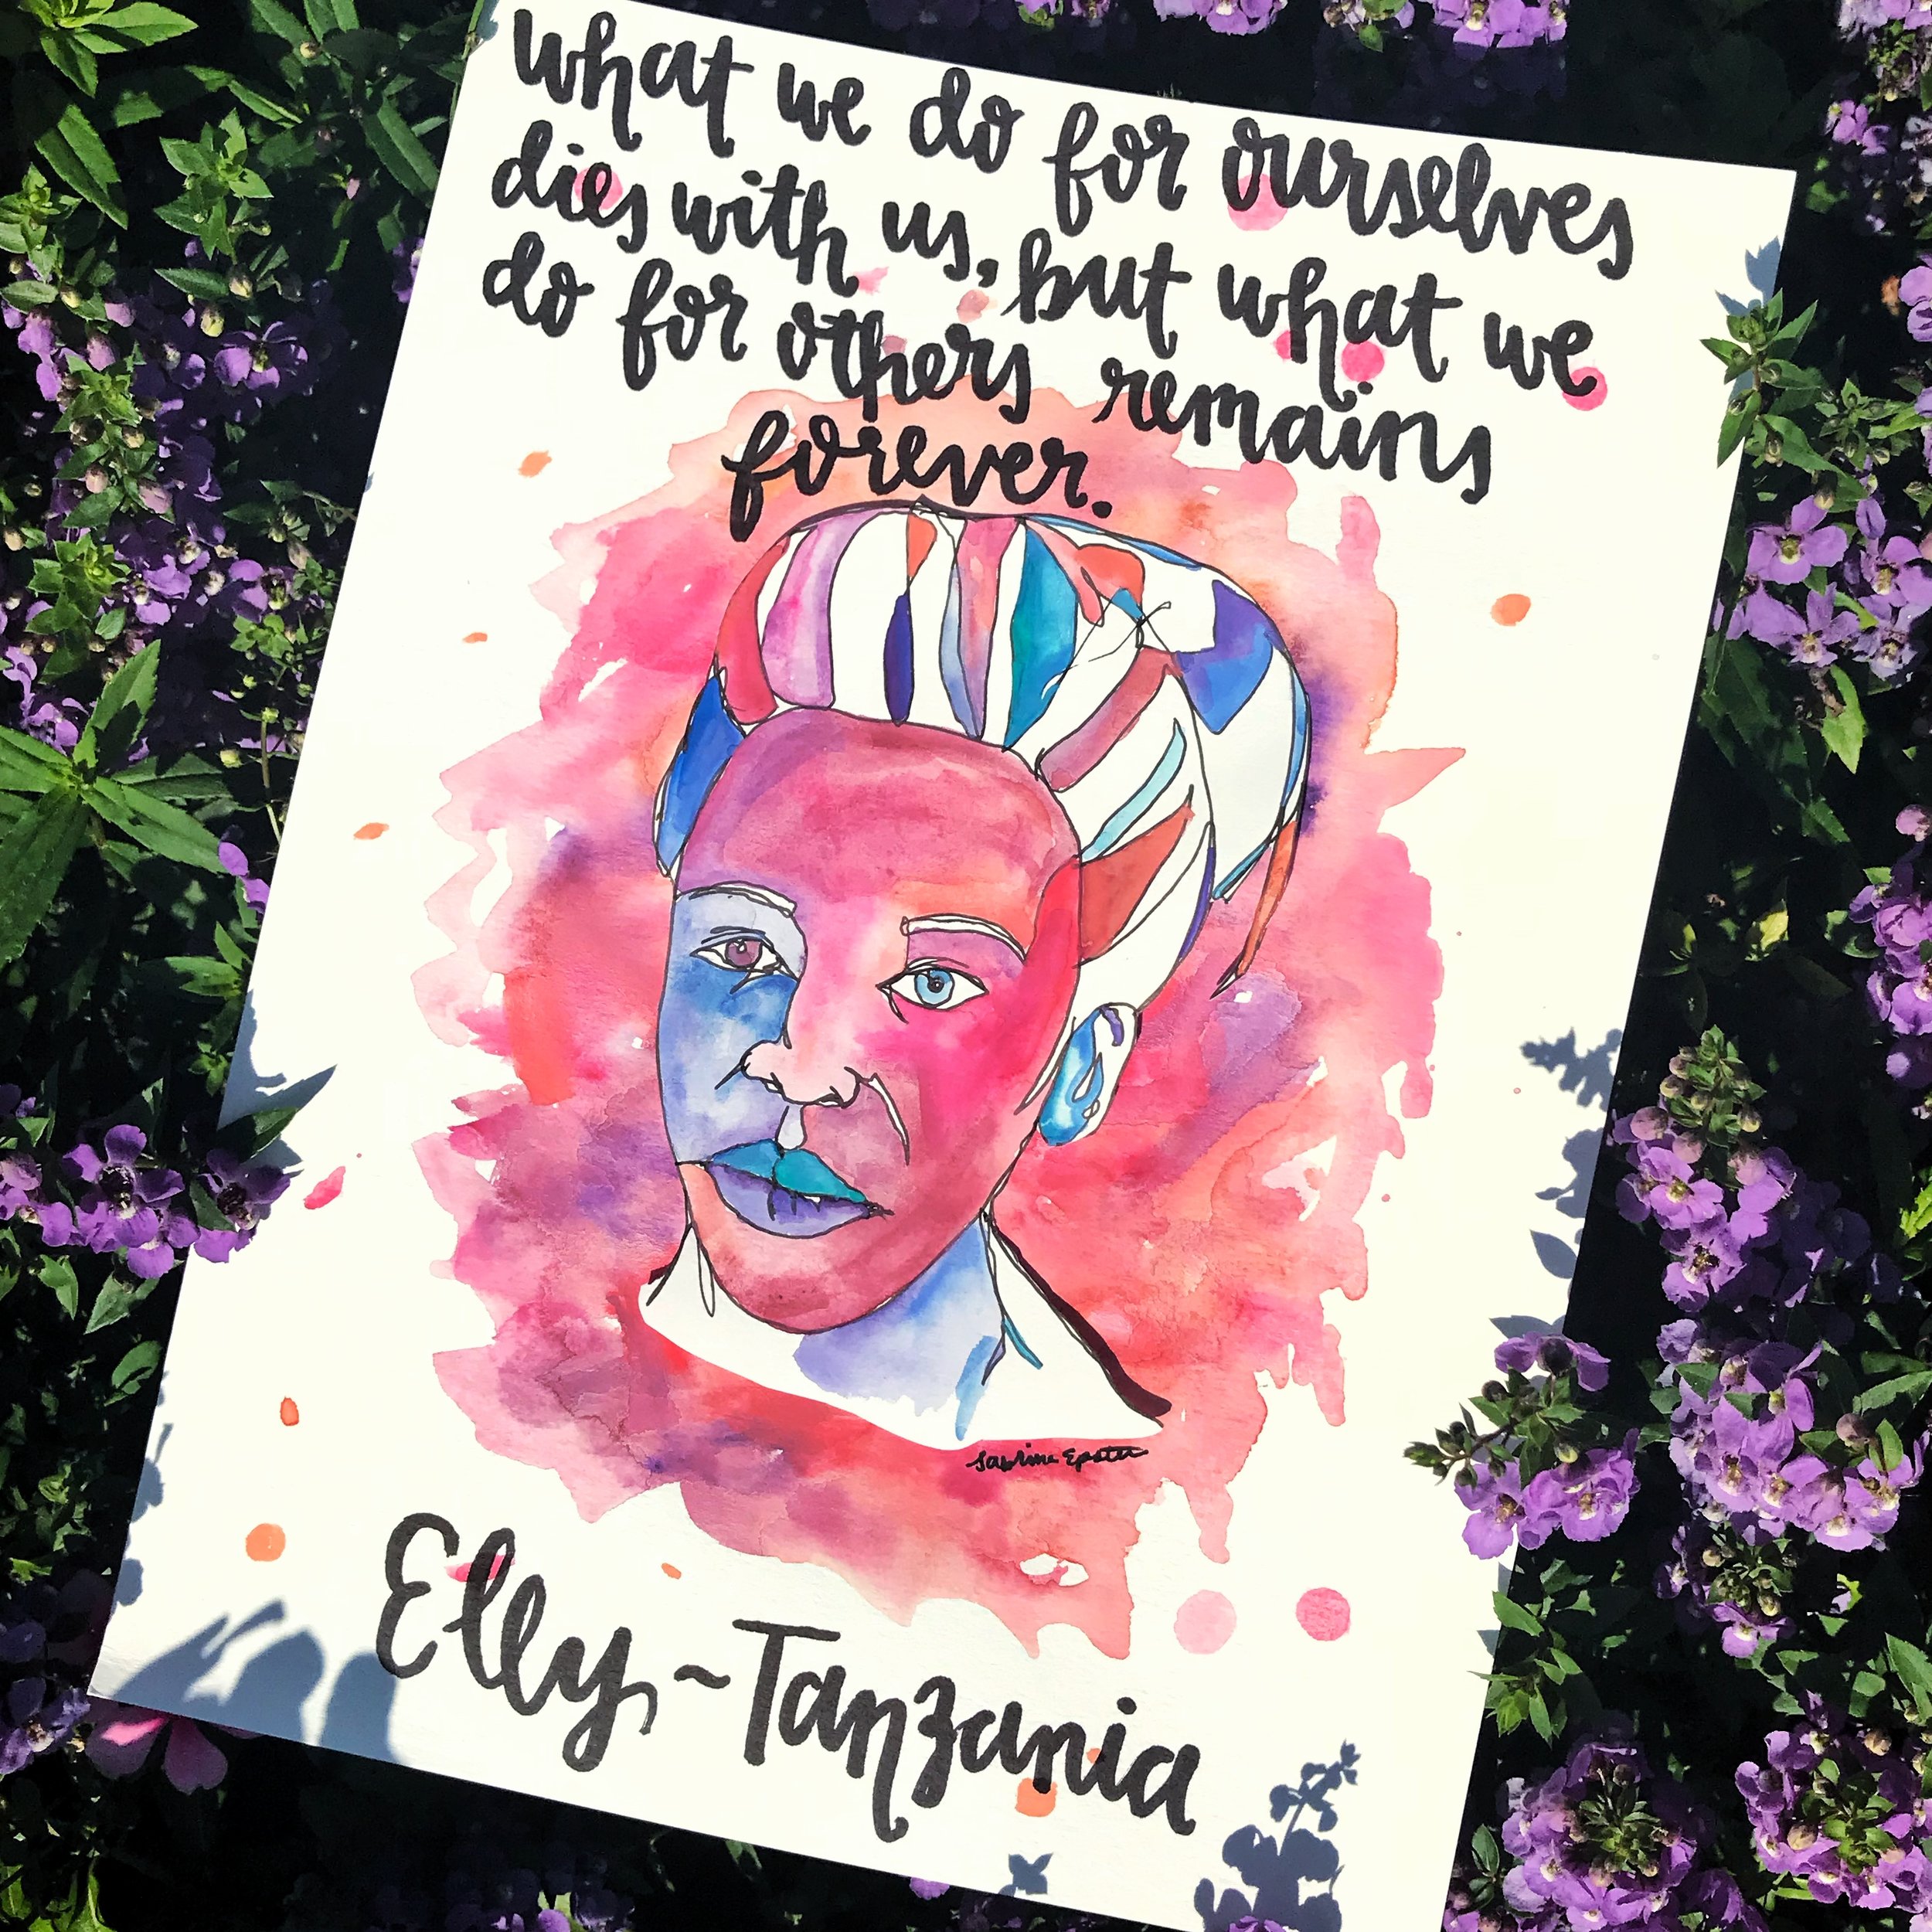 What we do for ourselves
dies with us, but what we
do for others remains
forever.
Sabrina Epstein
Elly ~ Tanzania